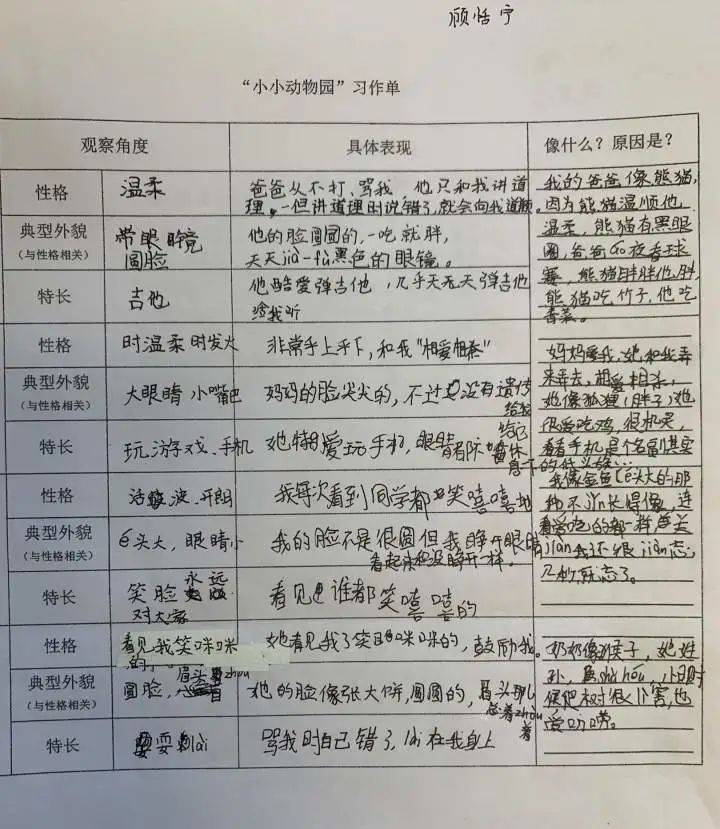 顾恬宁
“小小动物园”习作单
观察角度 具体表现 像什么？原因是？
性格 温柔
爸爸从不打、骂我，他只和我讲道
理，一但讲道理时说错了，就会向我道
典型外貌
（与性格相关）
带眼睛
圆脸
他的脸圆圆的，一吃就胖，
天天jià-fù黑色的眼镜。
特长 吉他
他酷爱弹吉他，几乎天天弹吉他
给我听
我的爸爸像熊猫，
因为熊猫温顺他
温柔，熊猫有黑眼
圈，爸爸 夜看球
赛，熊猫胖胖他胖，
熊猫吃竹子，他吃
香菜。
性格 时温柔时发火 非常手上手下，和我“相爱相杀”
典型外貌
（与性格相关）
大眼睛 小嘴巴 妈妈的脸尖尖的，不过 没有遗传
给我
特长 玩游戏、手机 她特爱玩手机，眼
妈妈爱我，她和我弄
来弄去，相爱相杀，
她像狐狸（胖子）她
很爱吃鸡，很机灵，
看看手机是个名副其实
的低头族…
性格 活波、开朗 我每次看到同学都 笑嘻嘻地
典型外貌
（与性格相关）
é头大，眼睛小 我的脸不是很圆但我睁开眼睛
看起来和没睁开一样。
特长 笑脸永远
对大家
看见 谁都笑嘻嘻的
我像 é头大的那
种 长得像，连
jiàn我还很jiàn忘，
几秒就忘了。
性格 看见我笑咪咪
的
她看见我了笑咪咪的，鼓励我。
典型外貌
（与性格相关）
圆脸， 眉头 zhòu
她的脸像张大饼，圆圆的，眉头那儿
总着zhòu
着
特长 耍 lài 骂我时自己错了，lài在我身上
奶奶像猴子，她姓
孙，属 hóu，小时
候爬树很厉害，也
爱叨唠。